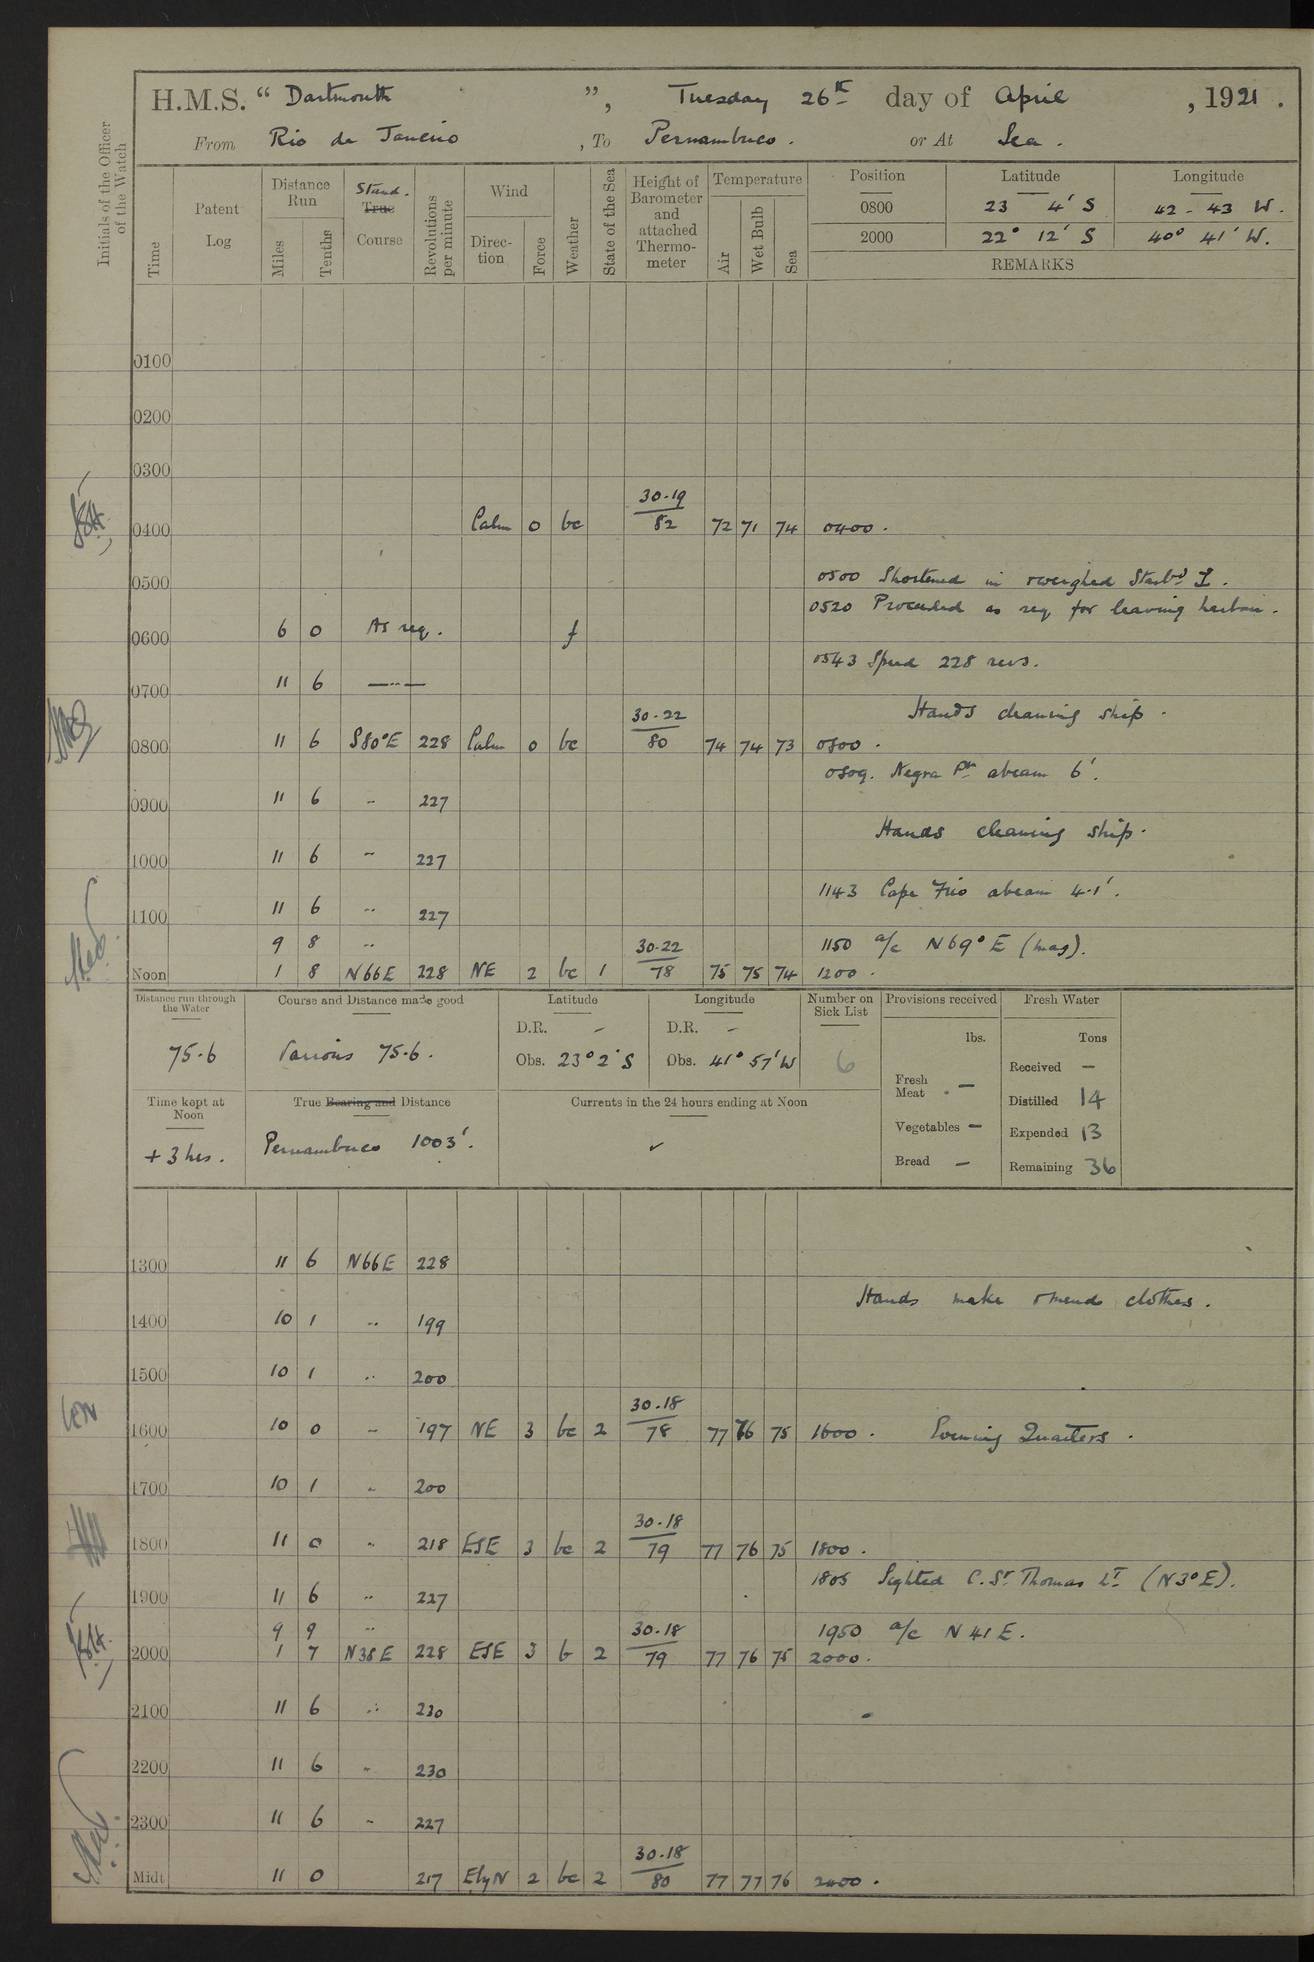 H.M.S. “ Dartmouth ”, Tuesday 26th day of April , 1921 .
From Rio de Janeiro , To Pernambuco . or At Sea .
Initials of the Officer of the Watch
Time
Patent Log
Distance Run
Miles
Tenths
Stand.
True
Course
Revolutions per minute
Wind
Direction
Force
Weather
State of the Sea
Height of Barometer and attached Thermometer
Temperature
Air
Wet Bulb
Sea
Position Latitude Longitude
0800 23 4' S 42 - 43 W.
2000 22° 12' S 40° 41' W.
REMARKS
0100
0200
0300
30.19
0400 Calm 0 bc 82 72 71 74 0400 .
0500 0500 Shortened in & weighed Starbd .
0520 Proceeded as req for leaving harbour .
0600 6 0 As req. f
0543 Speed 228 revs.
0700 11 6 — " —
Hands cleaning ship .
30.22
0800 11 6 S80°E 228 Calm 0 bc 80 74 74 73 0800 .
0809. Negra Pt abeam 6'.
0900 11 6 " 227
Hands cleaning ship.
1000 11 6 " 227
1143 Cape Frio abeam 4.1'.
1100 11 6 " 227
9 8 " 30.22 1150 a/c N69°E (mag).
Noon 1 8 N66E 228 NE 2 bc 1 78 75 75 74 1200 .
Distance run through the Water
75.6
Course and Distance made good
Various 75.6 .
Latitude
D.R. –
Obs. 23° 2' S
Longitude
D.R. –
Obs. 41° 57' W
Number on Sick List
6
Provisions received
lbs.
Fresh Meat –
Vegetables –
Bread –
Fresh Water
Tons
Received –
Distilled 14
Expended 13
Remaining 36
Time kept at Noon
+ 3 hrs .
True Bearing and Distance
Pernambuco 1003'.
Currents in the 24 hours ending at Noon
✓
1300 11 6 N66E 228
Hands make & mend clothes .
1400 10 1 " 199
1500 10 1 " 200
30.18
1600 10 0 " 197 NE 3 bc 2 78 77 76 75 1600 . Evening Quarters .
1700 10 1 " 200
30.18
1800 11 0 " 218 ESE 3 bc 2 79 77 76 75 1800 .
1805 Sighted C. St Thomas Lt (N3°E).
1900 11 6 " 227
9 9 " 30.18 1950 a/c N41E.
2000 1 7 N38E 228 ESE 3 b 2 79 77 76 75 2000.
2100 11 6 " 230
2200 11 6 " 230
2300 11 6 " 227
30.18
Midt 11 0 217 EbyN 2 bc 2 80 77 77 76 2400 .